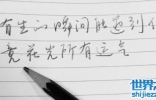 有生的瞬间能遇到你
竟花光所有运气
世界
shijiez